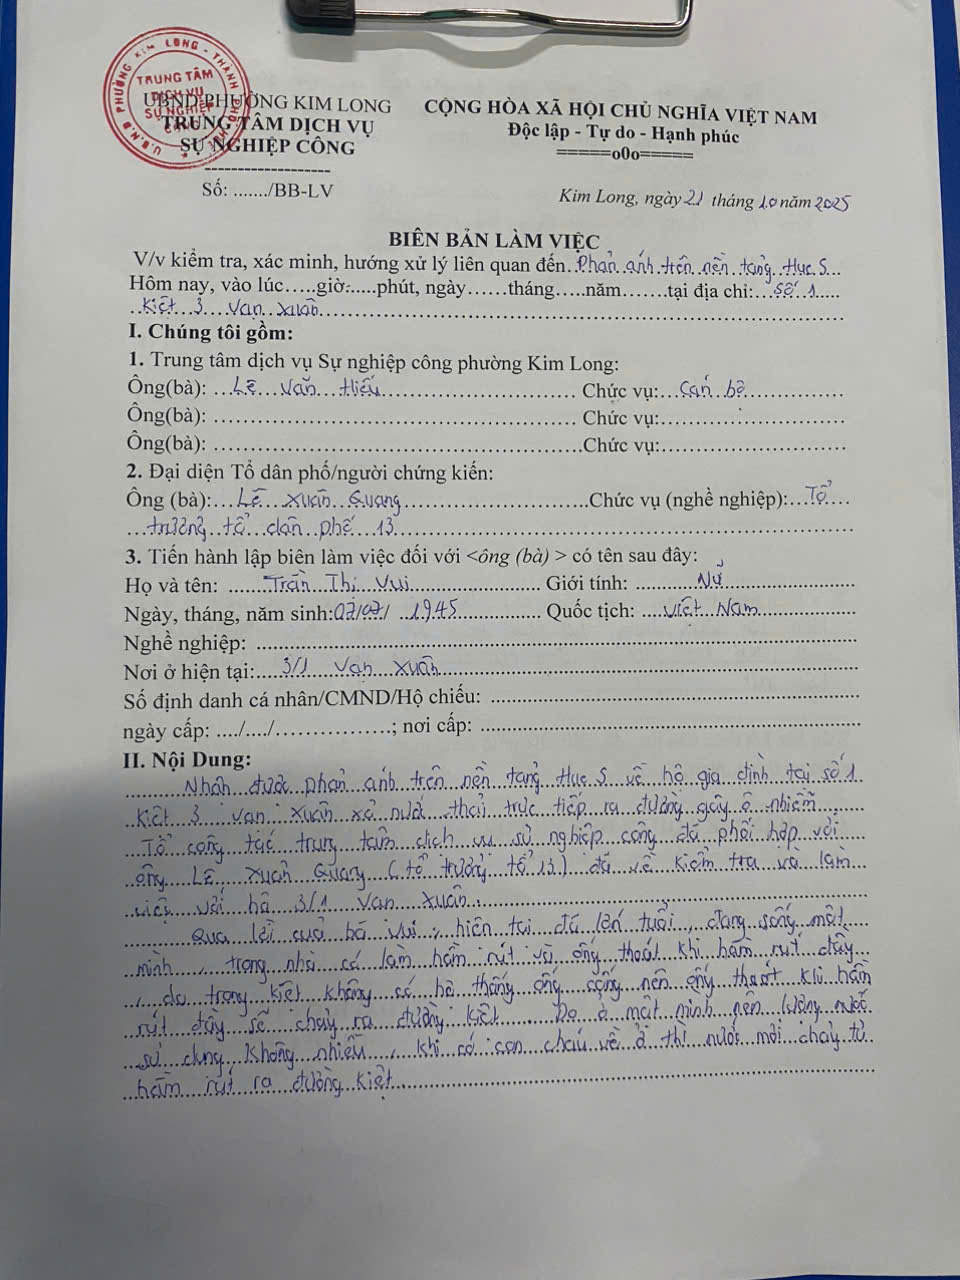 U.B.N.D PHƯỜNG KIM LONG - THÀNH PHỐ HUẾ
TRUNG TÂM
DỊCH VỤ
SỰ NGHIỆP
CÔNG
UBND PHƯỜNG KIM LONG
TRUNG TÂM DỊCH VỤ
SỰ NGHIỆP CÔNG
-------------------
Số: ......./BB-LV
CỘNG HÒA XÃ HỘI CHỦ NGHĨA VIỆT NAM
Độc lập - Tự do - Hạnh phúc
=====o0o=====
Kim Long, ngày 21 tháng 10 năm 2025
BIÊN BẢN LÀM VIỆC
V/v kiểm tra, xác minh, hướng xử lý liên quan đến..Phản ánh trên nền tảng Hue S...
Hôm nay, vào lúc.....giờ......phút, ngày......tháng.....năm.......tại địa chỉ:...số 1.....
..kiệt 3 Vạn Xuân....
I. Chúng tôi gồm:
1. Trung tâm dịch vụ Sự nghiệp công phường Kim Long:
Ông(bà): ...Lê Văn Hiếu.... Chức vụ:...Cán bộ....
Ông(bà): .... Chức vụ:....
Ông(bà): ....Chức vụ:....
2. Đại diện Tổ dân phố/người chứng kiến:
Ông (bà):...Lê Xuân Quang....Chức vụ (nghề nghiệp):...Tổ...
...trưởng tổ dân phố 13....
3. Tiến hành lập biên làm việc đối với <ông (bà) > có tên sau đây:
Họ và tên: ....Trần Thị Vui.... Giới tính: ....Nữ....
Ngày, tháng, năm sinh:07/07/ 1945.... Quốc tịch: ....Việt Nam....
Nghề nghiệp: ....
Nơi ở hiện tại:....3/1 Vạn Xuân....
Số định danh cá nhân/CMND/Hộ chiếu: ....
ngày cấp: ..../..../................; nơi cấp: ....
II. Nội Dung:
Nhận được phản ánh trên nền tảng Hue S về hộ gia đình tại số 1
kiệt 3 Vạn Xuân xả nước thải trực tiếp ra đường gây ô nhiễm
Tổ công tác trung tâm dịch vụ sự nghiệp công đã phối hợp với
ông Lê Xuân Quang (tổ trưởng tổ 13) đã về kiểm tra và làm
việc với hộ 3/1 Vạn Xuân.
Qua lời của bà Vui, hiện tại đã lớn tuổi, đang sống một
mình, trong nhà có làm hầm rút và ống thoát khi hầm rút đầy
, do trong kiệt không có hệ thống ống cống nên ống thoát khi hầm
rút đầy sẽ chảy ra đường kiệt. Do ở một mình nên lượng nước
sử dụng không nhiều, khi có con cháu về ở thì nước mới chảy từ
hầm rút ra đường kiệt....